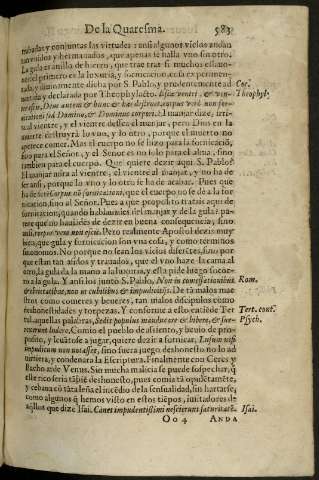 De la Quaresma. 583
trabadas y conjuntas las virtudes: unos algunos vicios andan
tan vnidos y hermanados, que apenas se halla vno sin otro.
La gula es anillo de hierro, que trae tras si mucho
el primero es la luxuria, y fornicacion: es experimen-
tada, y diuinamente dicha por S. Pablo, y prudentemente ad Cor.
uertida y declarada por Theophylacto. Esca ventri, & Theophyl.
escis. Deus autem & hunc & has destruet, corpus verò non for-
nicationi sed Domino, & Dominus corpori. El manjar dize, siruē
al vientre, y el vientre dessea el manjar, pero Dios en la
muerte destruyrà lo vno, y lo otro, porque el muerto no
apetece comer. Mas el cuerpo no se hizo para la fornicaciõ,
sino para el Señor, y el Señor es no solo para el alma, sino
tambien para el cuerpo. Que quiere dezir aqui S. Pablo?
El manjar mira al vientre, el vientre al manjar, y no ha de
ser ansi, porque lo vno y lo otro se ha de acabar. Pues que
ha de ser? Corpus nõ fornicationi, que el cuerpo no se dè a la for-
nicacion, sino al Señor. Pues a que proposito tratais aqui de
fornicacion, quando hablauades del manjar y de la gula? pa-
rece que no hauiades de dezir en buena consequencia, sino
assi, corpus verò non escis. Pero realmente Apostol dezis muy
bien, que gula y fornicacion son vna cosa, y como terminos
sinonomos. No porque no sean los vicios distintos, sino por
que estan tan asidos y trauados, que el vno haze la cama al
otro, la gula da la mano a la luxuria, y esta pide luego socor-
ro a la gula. Y ansi los junto S. Pablo, Non in comessationibus Rom.
& ebrietatibus, non in cubilibus & impudicitijs. De tã malos mae-
stros como comeres y beueres, tan malos discipulos como
deshonestidades y torpezas. Y conforme a esto entiēde Ter Tert. cont.
tul. aquellas palabras, Sedit populus manducare & bibere, & sur- Psych.
rexerunt ludere. Comio el pueblo de assiento, y beuio de pro-
posito, y leuãtose a jugar, quiere dezir a fornicar. Lusum nisi
impudicum non notasset, sino fuera juego deshonesto no lo ad
uirtiera, y condenara la Escriptura. Finalmente con Ceres y
Bacho arde Venus. Sin mucha malicia se puede sospechar, q̃
esse rico seria tãbiē deshonesto, pues comia tã opulētamēte,
y cebaua cõ tãta leña el incēdio de la sensualidad, sin hartarse,
como algunos q̃ hemos visto en estos tiēpos, imitadores de
aq̃llos que dize Isai. Canes impudentissimi nescierunt saturitatē. Isai.
Oo 4 ANDA